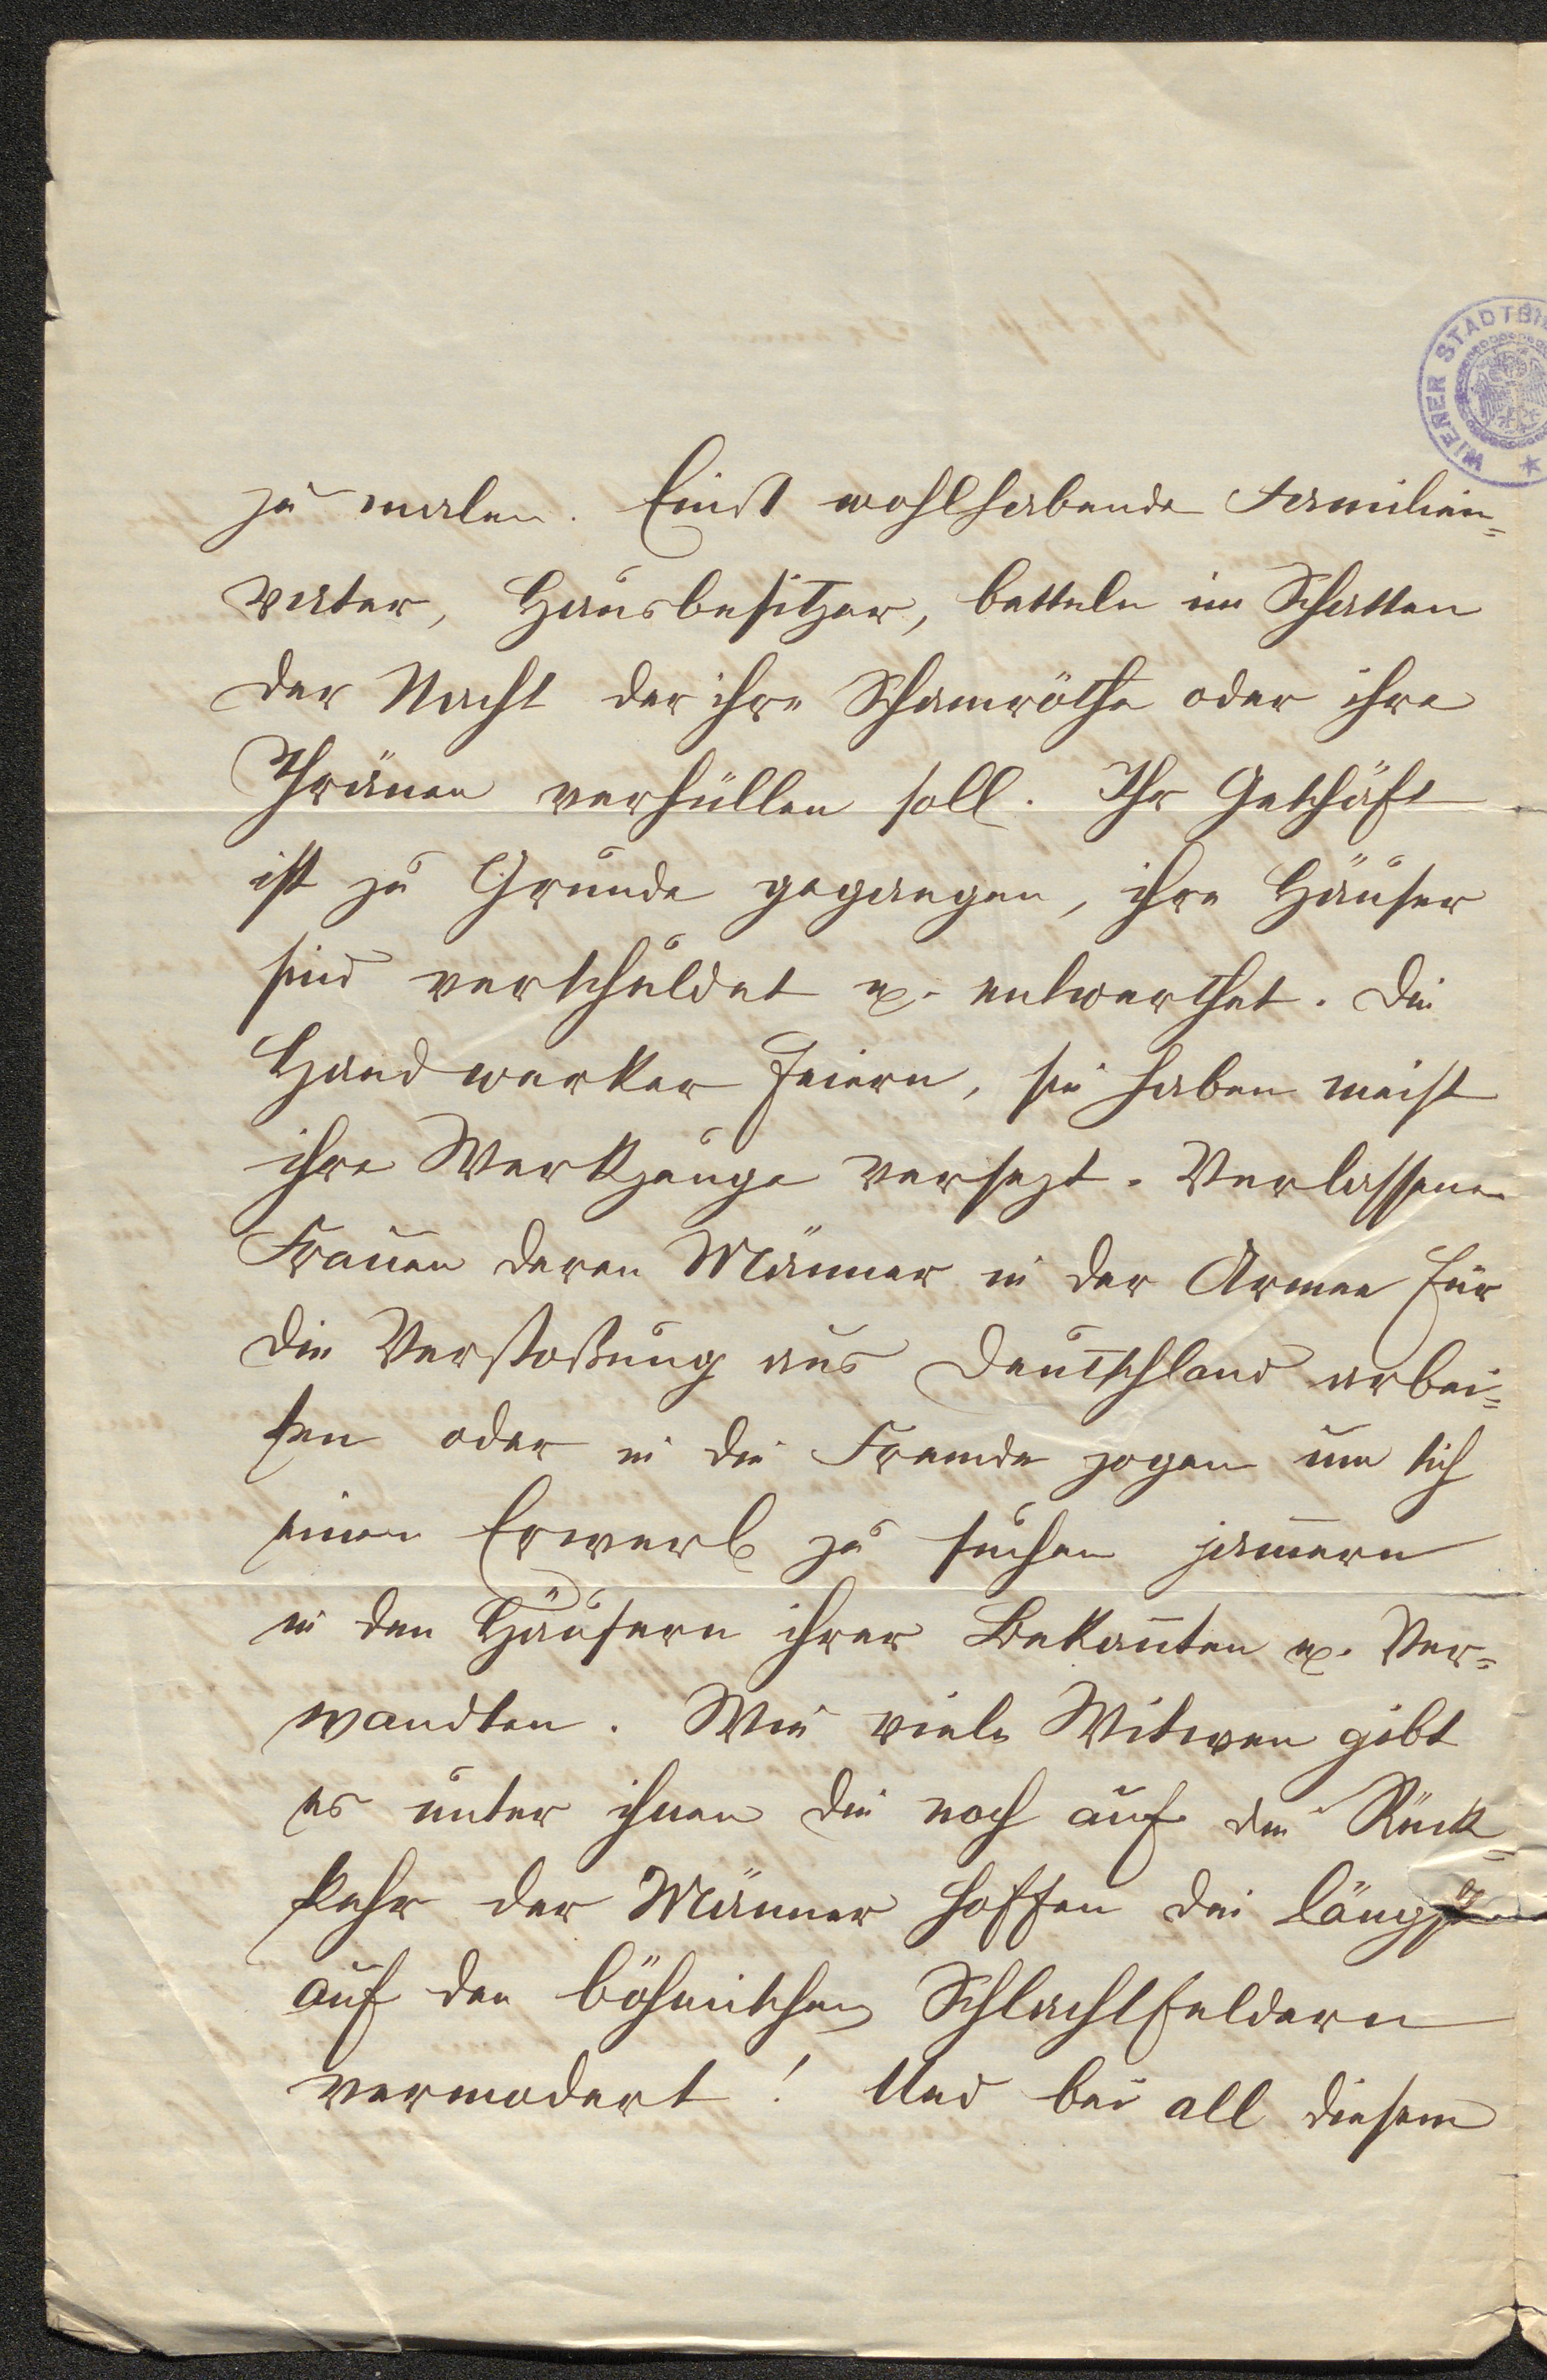 WIENER STADTBI
zu malen. Einst wohlhabende Familien=
vater, Hausbesitzer, betteln im Schatten
der Nacht der ihre Schamröthe oder ihre
Thränen verhüllen soll. Ihr Geschäft
ist zu Grunde gegangen, ihre Häuser
sind verschuldet u. entwerthet. Die
Handwerker feiern, sie haben meist
ihre Werkzeuge versezt. Verlassene
Frauen deren Männer in der Armee für
die Verstoßung aus Deutschland arbei=
ten oder in die Fremde zogen um sich
einen Erwerb zu suchen jam̅ern
in den Häusern ihrer Bekan̅ten u. Ver=
wandten. Wie viele Witwen gibt
es unter ihnen die noch auf die Rück=
kehr der Männer hoffen die längst
auf den böhmischen Schlachtfeldern
vermodert! Und bei all diesem